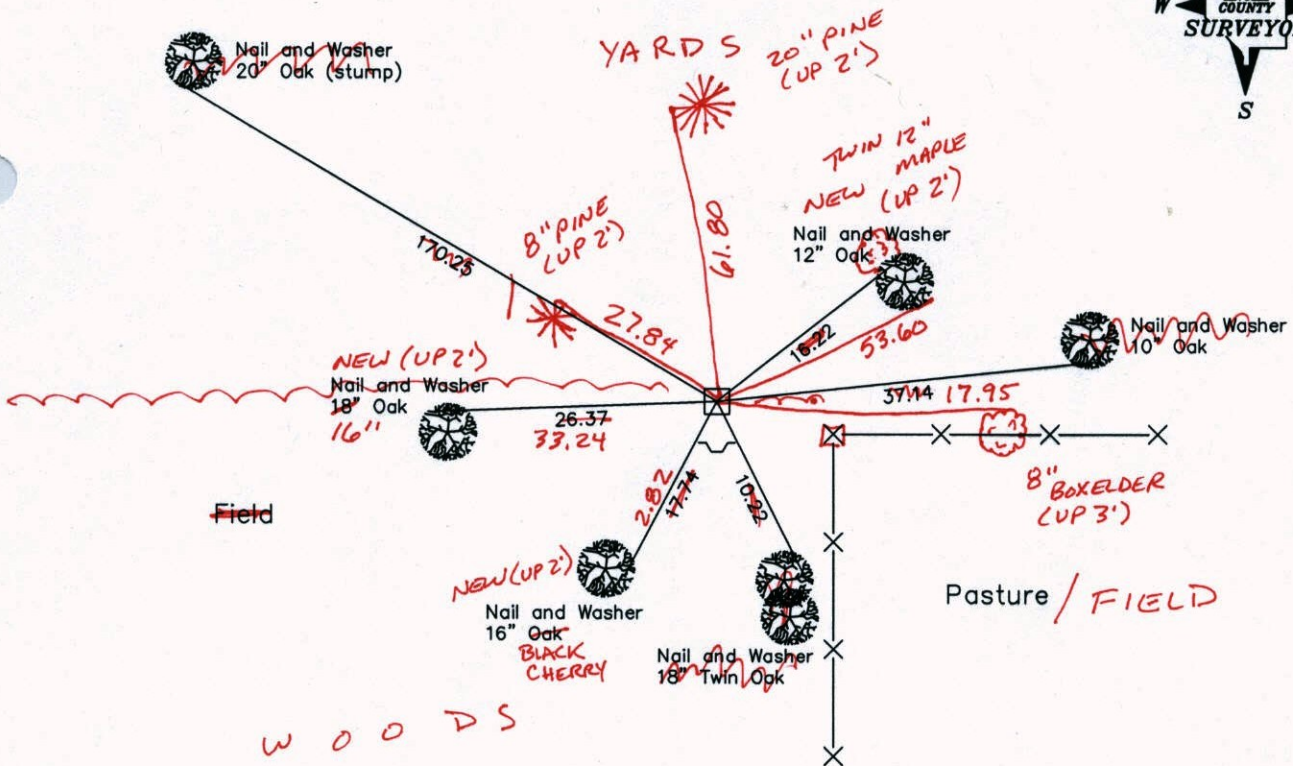 W
COUNTY
SURVEYO
S
Nail and Washer
20" Oak (stump)
YARDS
20" PINE
(UP 2')
TWIN 12"
MAPLE
NEW (UP 2')
Nail and Washer
12" Oak
8" PINE
(UP 2')
170.25
61.80
27.84
16.22
53.60
Nail and Washer
10" Oak
NEW (UP 2')
Nail and Washer
18" Oak
16"
26.37
33.24
37.14 17.95
8"
BOXELDER
(UP 3')
Field
2.82
17.74
10.22
NEW (UP 2')
Nail and Washer
16" Oak
BLACK
CHERRY
Nail and Washer
18" Twin Oak
Pasture / FIELD
WOODS